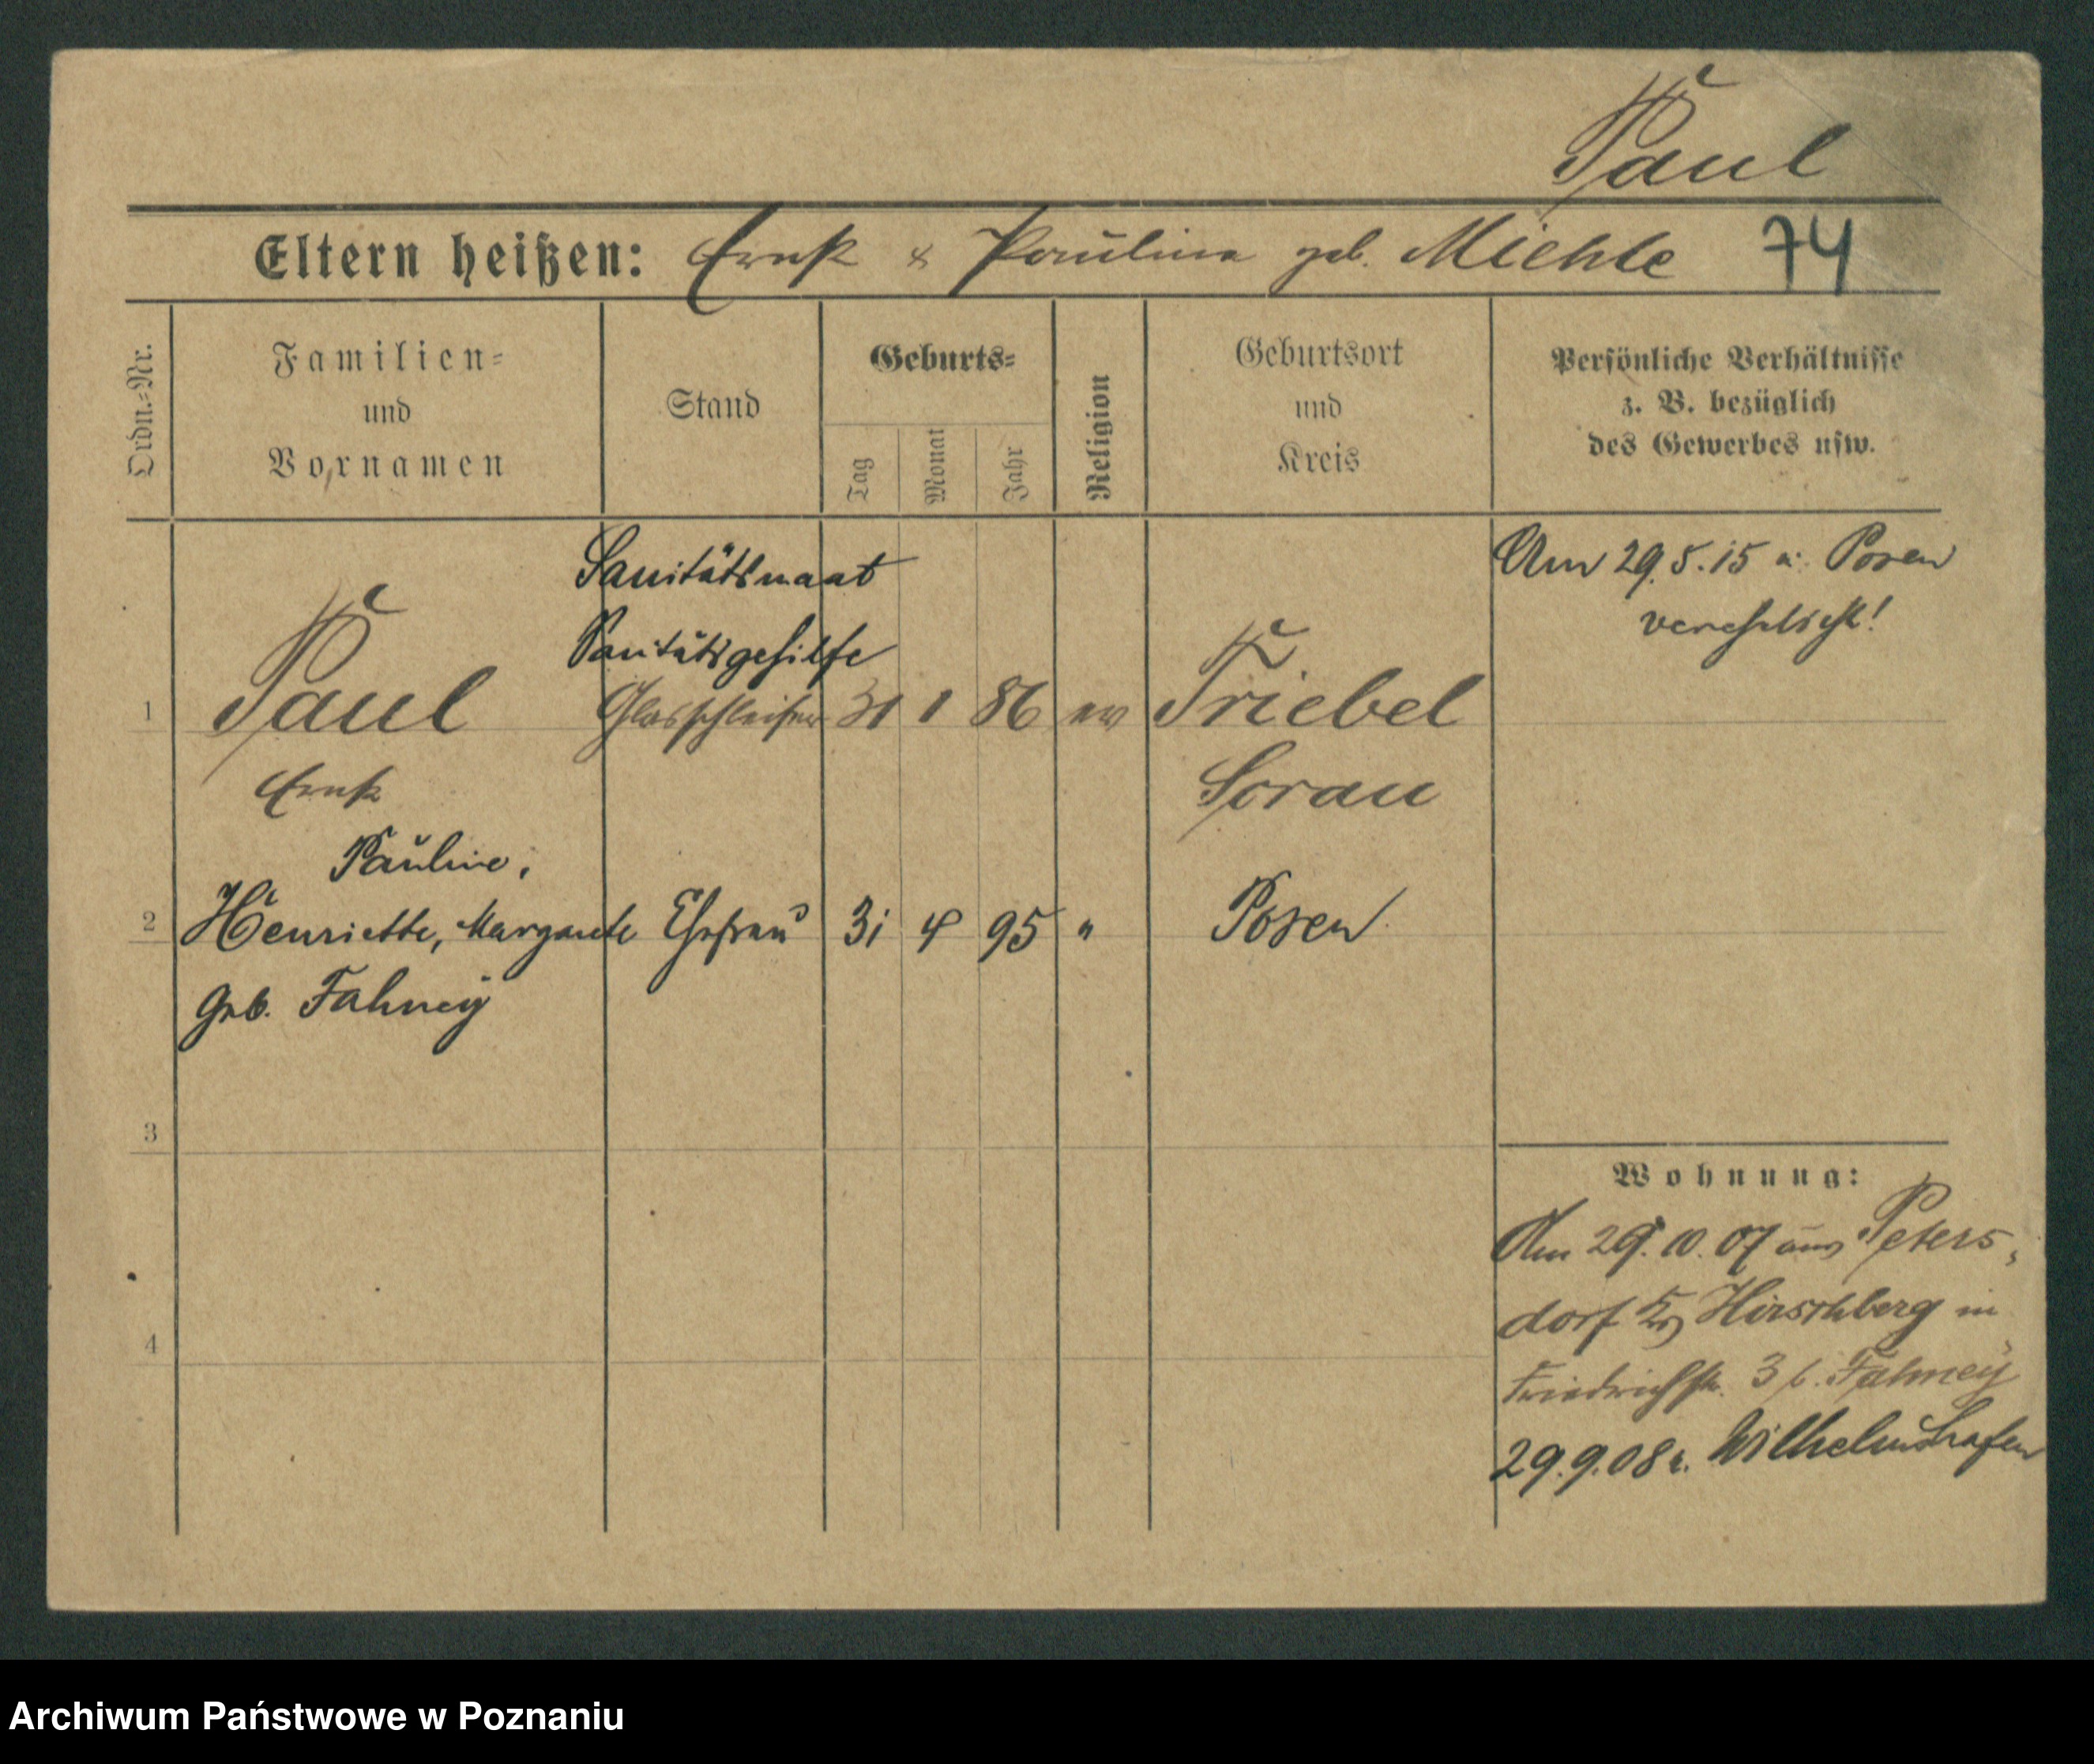 Paul
Eltern heißen: Ernst & Pauline geb. Miehle 74
Ordn.-Nr.
Familien-
und
Vornamen
Stand
Geburts-
Tag
Monat
Jahr
Religion
Geburtsort
und
Kreis
Persönliche Verhältnisse
z. B. bezüglich
des Gewerbes usw.
Sanitätsmaat
Sanitätsgehilfe
1 Paul Glasschleifer 31 1 86 ev Triebel
Ernst
Sorau
Am 29.5.15 i. Posen
verehelicht!
Pauline,
2 Henriette, Margarete Ehefrau 31 4 95 " Posen
geb. Fahney
3
4
Wohnung:
Am 29.10.07 aus Peters-
dorf Kr Hirschberg in
Friedrichstr. 3 b. Fahney
29.9.08 n. Wilhelmshafen
Archiwum Państwowe w Poznaniu